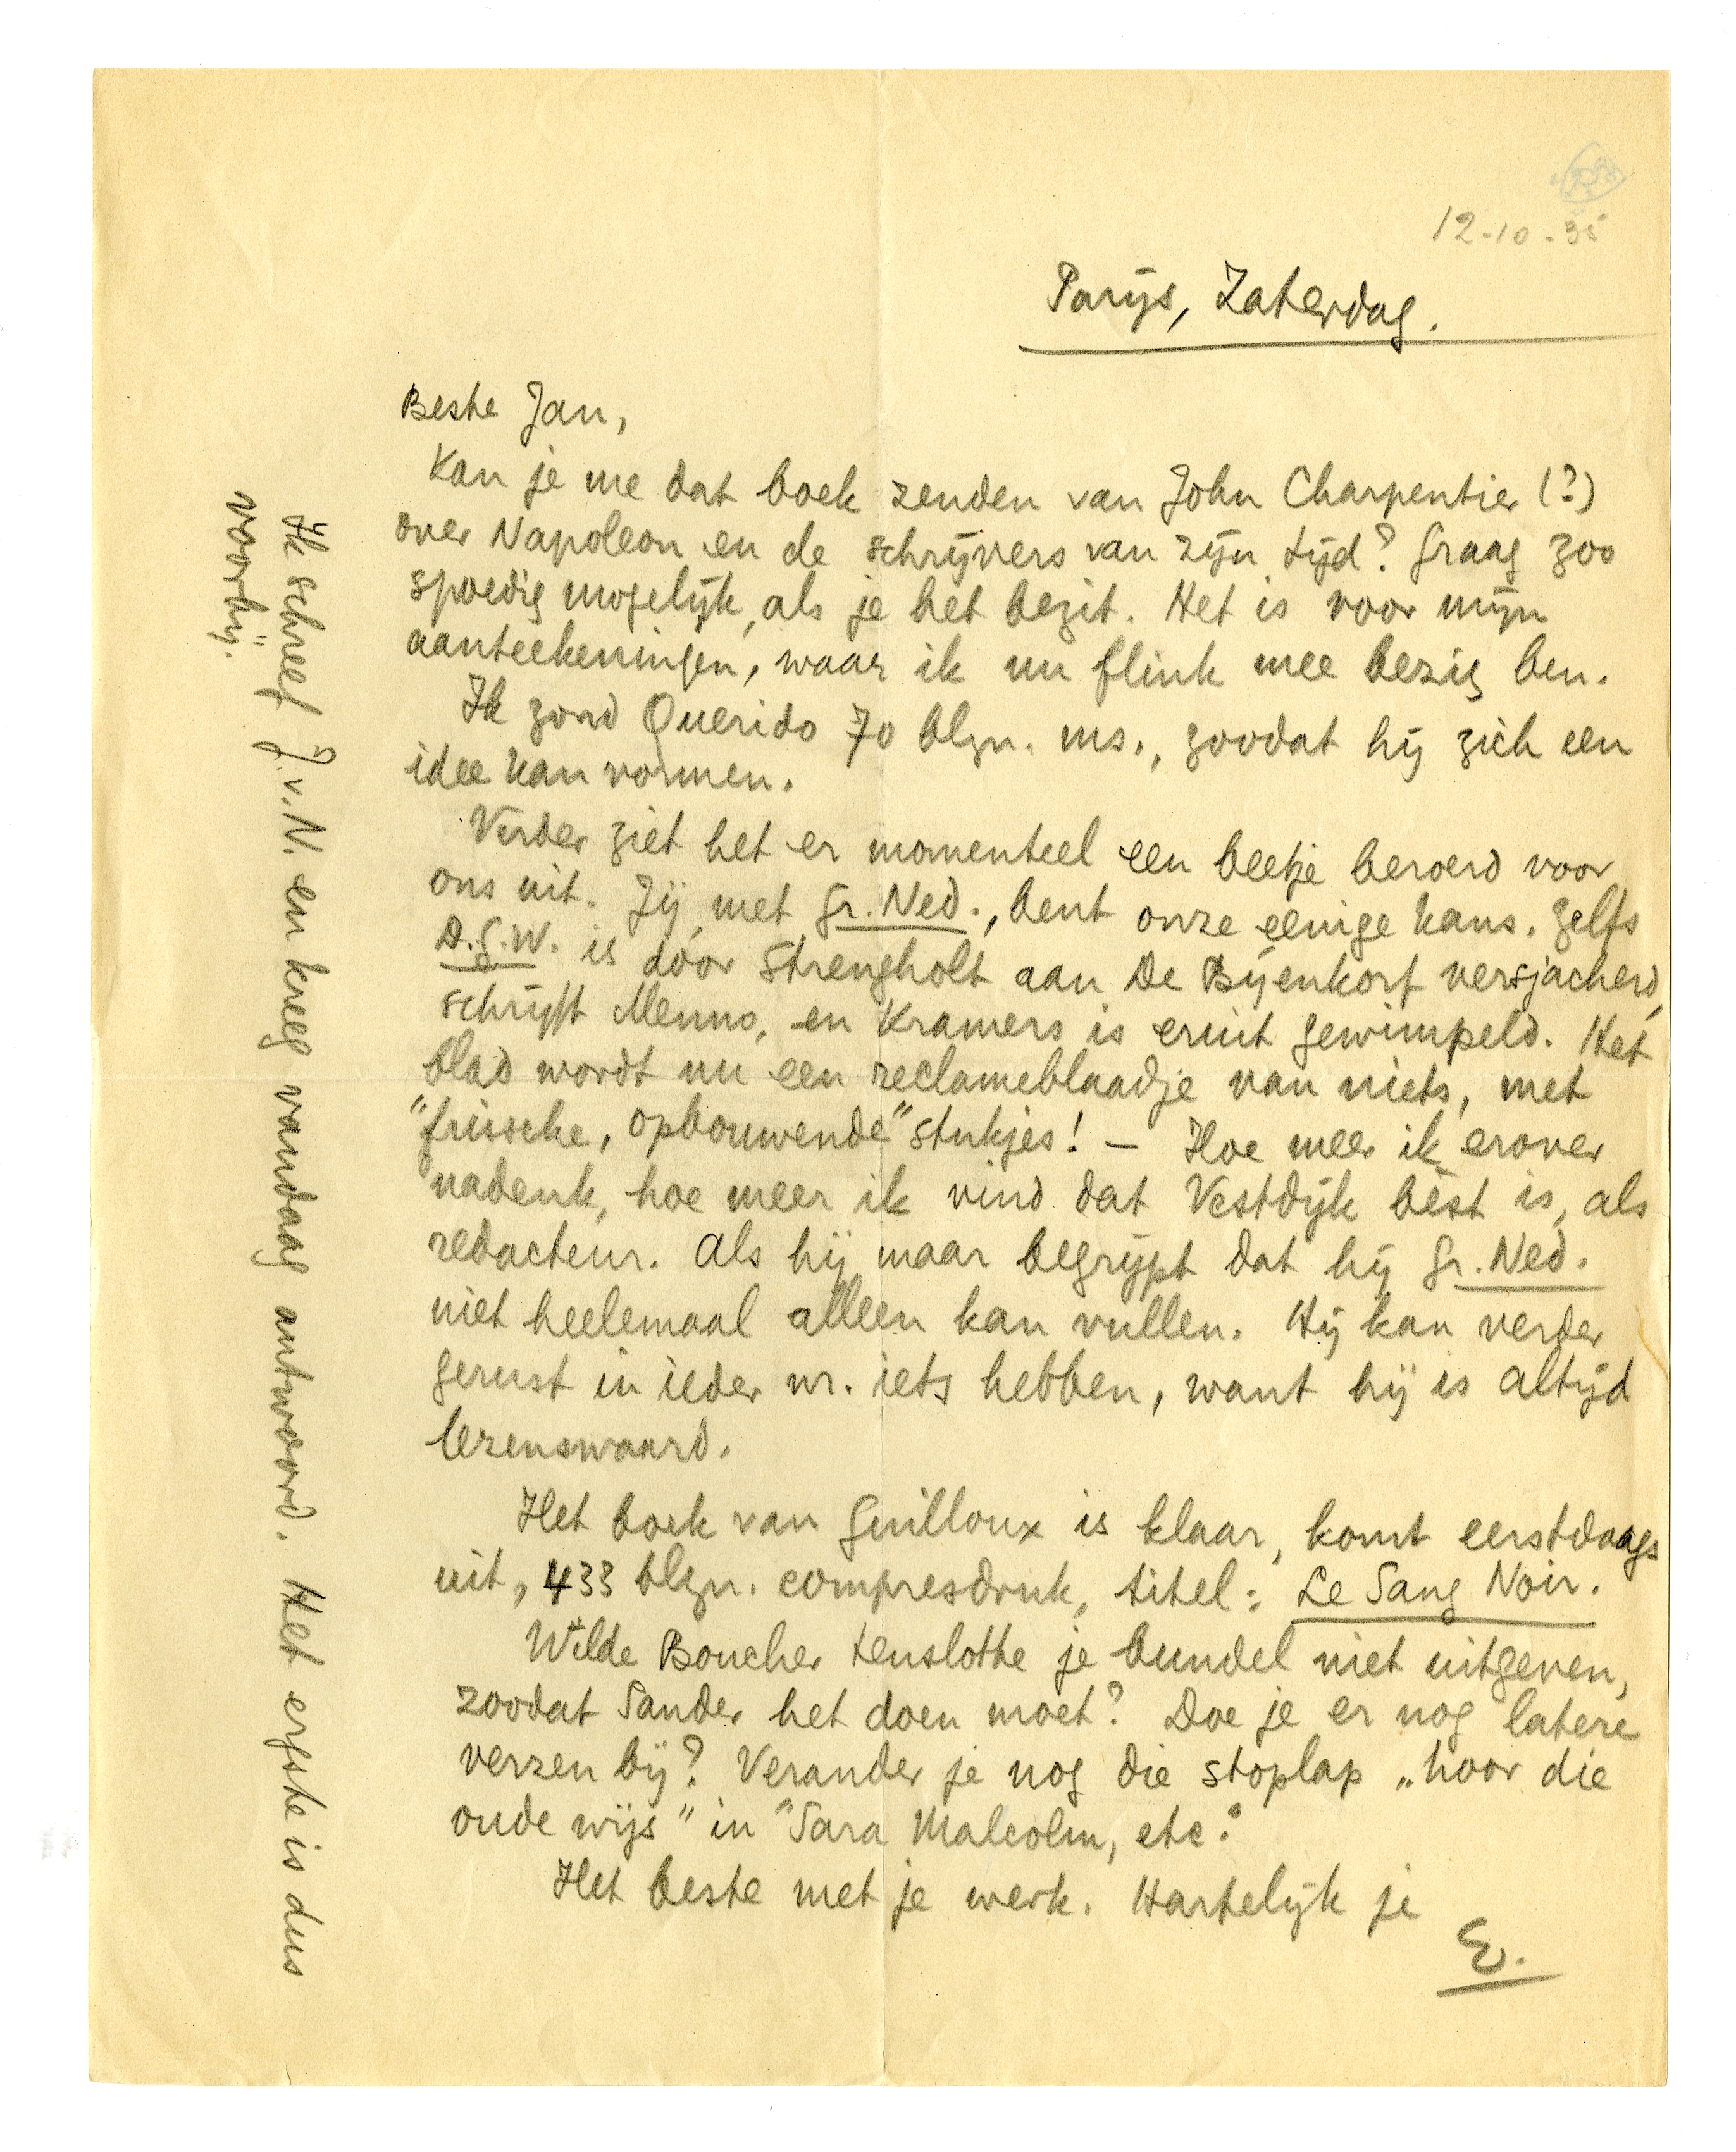 12-10-35
Parijs, Zaterdag.
Beste Jan,
Kan je me dat boek zenden van John Charpentier (?)
over Napoleon en de schrijvers van zijn tijd? Graag zoo
spoedig mogelijk, als je het bezit. Het is voor mijn
aanteekeningen, waar ik nu flink mee bezig ben.
Ik zond Querido 70 blzn. ms., zoodat hij zich een
idee kan vormen.
Verder ziet het er momenteel een beetje beroerd voor
ons uit. Jij, met Gr. Ned., bent onze eenige kans. Zelfs
D.G.W. is dóór Strengholt aan De Bijenkorf versjacherd,
schrijft Menno, en Kramers is eruit gewimpeld. Het
blad wordt nu een reclameblaadje van niets, met
"frissche, opbouwende" stukjes! — Hoe meer ik erover
nadenk, hoe meer ik vind dat Vestdijk bèst is, als
redacteur. Als hij maar begrijpt dat hij Gr. Ned.
niet heelemaal alleen kan vullen. Hij kan verder
gerust in ieder nr. iets hebben, want hij is altijd
lezenswaard.
Het boek van Guilloux is klaar, komt eerstdaags
uit, 433 blzn. compresdruk, titel: Le Sang Noir.
Wilde Boucher tenslotte je bundel niet uitgeven,
zoodat Sander het doen moet? Doe je er nog latere
verzen bij? Verander je nog die stoplap „hoor die
oude wijs" in "Sara Malcolm, etc."
Het beste met je werk. Hartelijk je
E.
Ik schreef J.v.N. en kreeg vandaag antwoord. Het ergste is dus
voorbij.